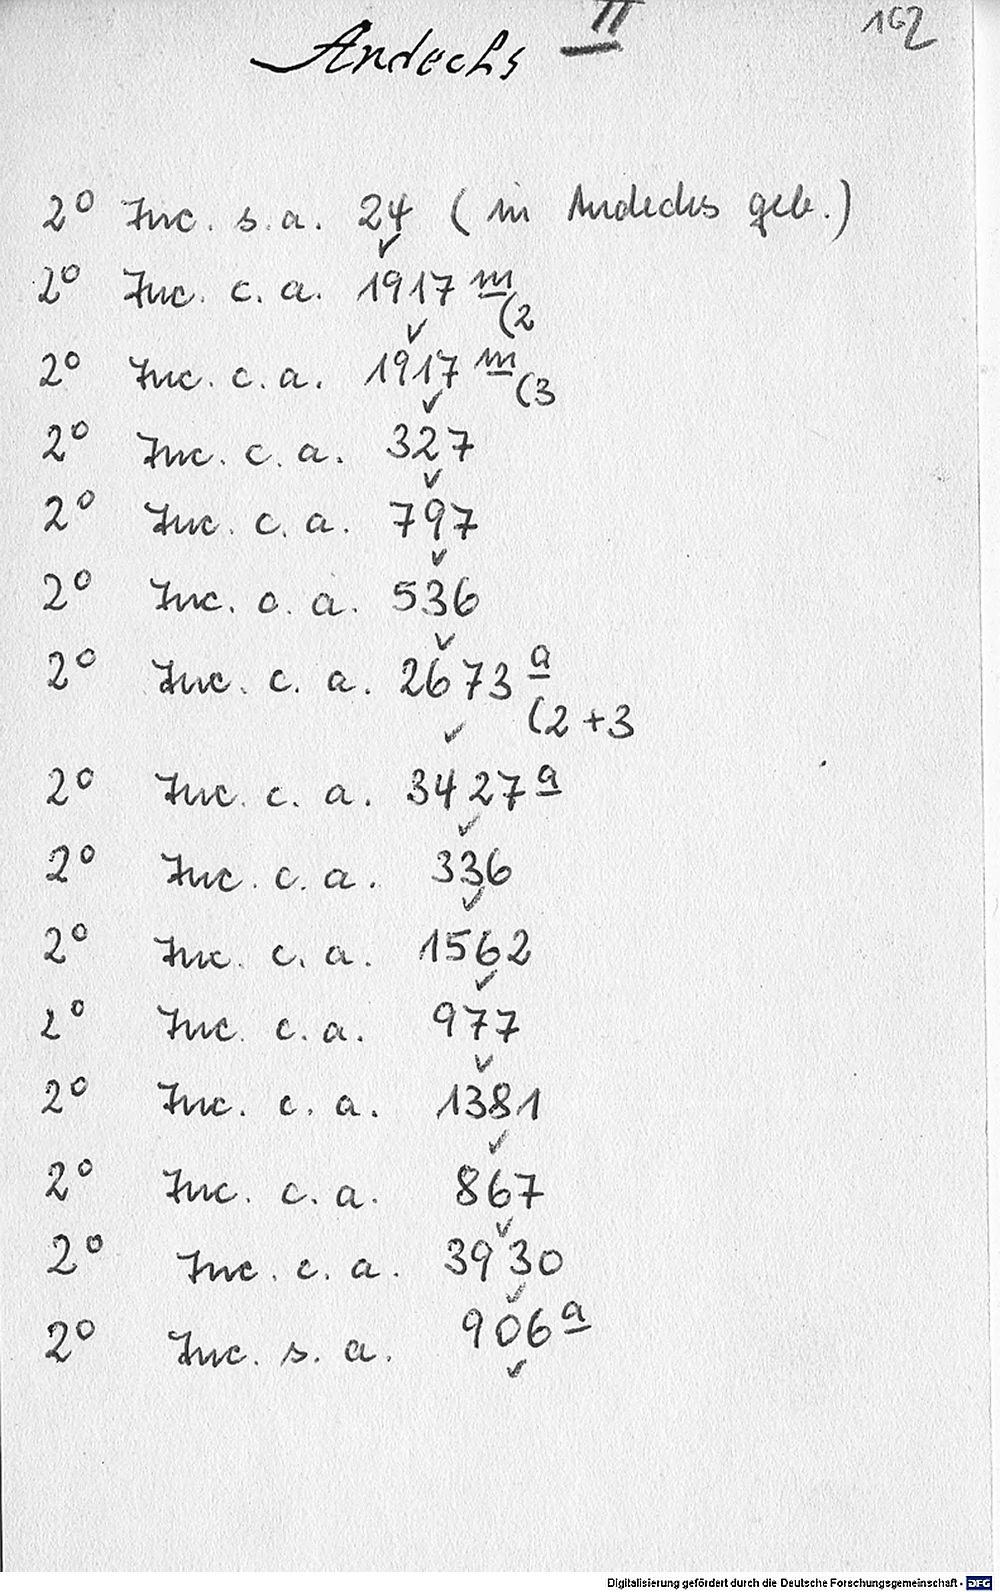 Andechs II 162
2° Inc. s.a. 24 (in Andechs geb.)
✓
2° Inc. c.a. 1917 m (2
✓
2° Inc. c.a. 1917 m (3
✓
2° Inc. c.a. 327
✓
2° Inc. c.a. 797
✓
2° Inc. c.a. 536
✓
2° Inc. c.a. 2673 a (2+3
✓
2° Inc. c.a. 3427 a
✓
2° Inc. c.a. 336
✓
2° Inc. c.a. 1562
✓
2° Inc. c.a. 977
✓
2° Inc. c.a. 1381
✓
2° Inc. c.a. 867
✓
2° Inc. c.a. 3930
✓
2° Inc. s.a. 906 a
✓
Digitalisierung gefördert durch die Deutsche Forschungsgemeinschaft - DFG